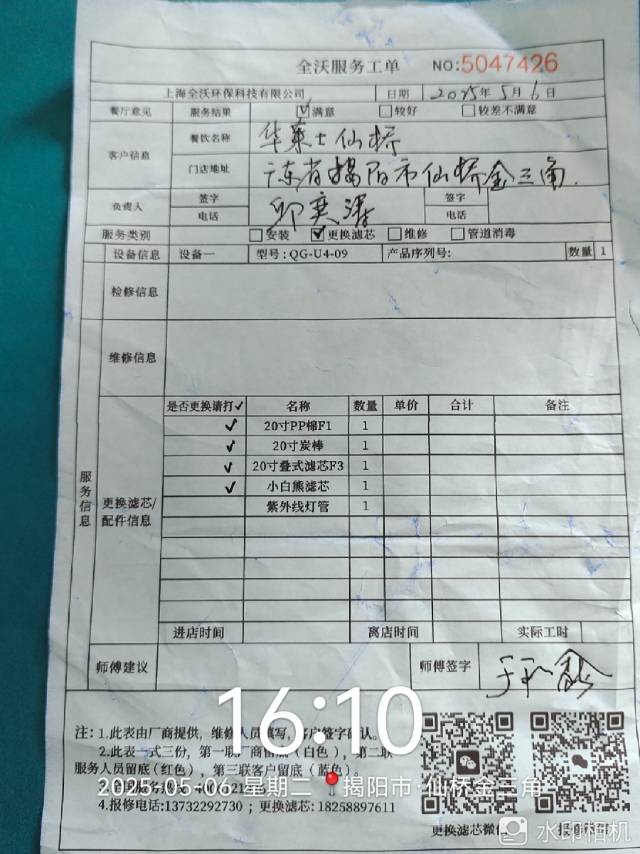 全沃服务工单 NO:5047426
上海全沃环保科技有限公司 日期 2025年5月6日
餐厅意见 服务结果 ☑满意 □较好 □较差不满意
客户信息 餐饮名称 华莱士仙桥
门店地址 广东省揭阳市仙桥金三角.
负责人 签字 签字
电话 电话
服务类别 □安装 ☑更换滤芯 □维修 □管道消毒
服务信息
设备信息 设备一 型号:QG-U4-09 产品序列号: 数量 1
检修信息
维修信息
更换滤芯/配件信息
是否更换请打✓ 名称 数量 单价 合计 备注
✓ 20寸PP棉F1 1
✓ 20寸炭棒 1
✓ 20寸叠式滤芯F3 1
✓ 小白熊滤芯 1
紫外线灯管 1
进店时间 离店时间 实际工时
师傅建议 师傅签字
16:10
注: 1.此表由厂商提供, 维修人员填写, 客户签字确认。
2.此表一式三份, 第一联厂商留底(白色), 第二联
服务人员留底(红色), 第三联客户留底(蓝色)。
2025.05.06 星期二 揭阳市·仙桥金三角
4.报修电话:13732292730 ; 更换滤芯: 18258897611
更换滤芯微信
水印相机